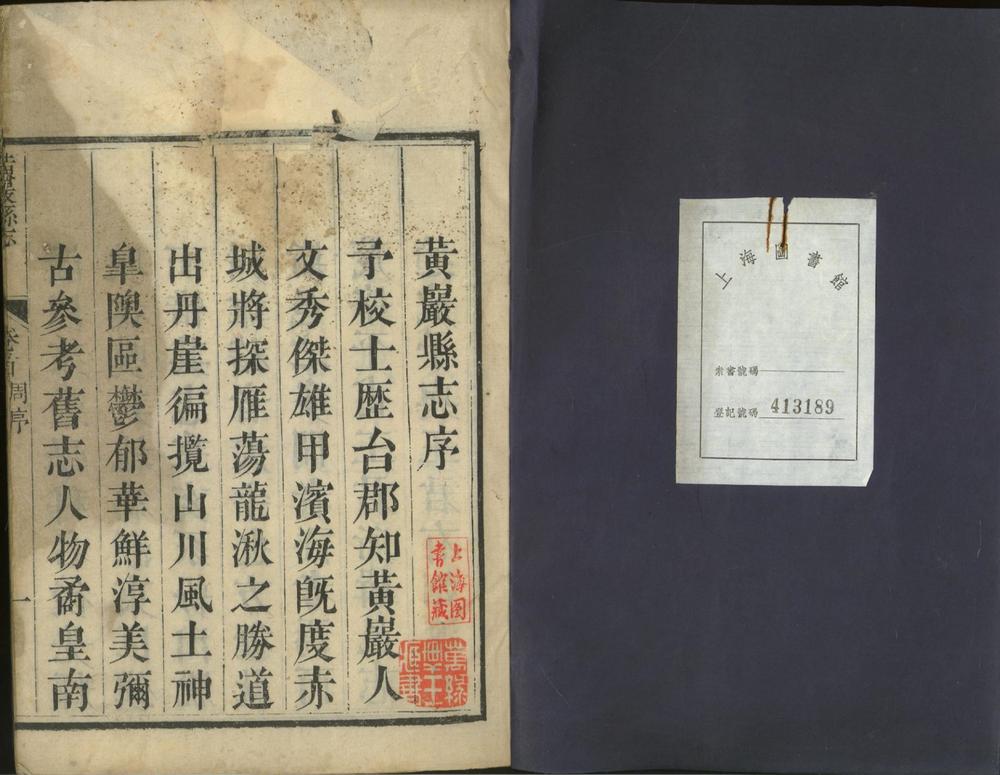 上海圖書館
索書號碼
登記號碼 413189
黃巖縣志序
予校士歷台郡知黃巖人
文秀傑雄甲濱海旣度赤
城將探雁蕩龍湫之勝道
出丹崖徧攬山川風土神
皐隩區鬱郁華鮮淳美彌
古參考舊志人物矞皇南
上海图書館藏
黃巖縣志
周序
一